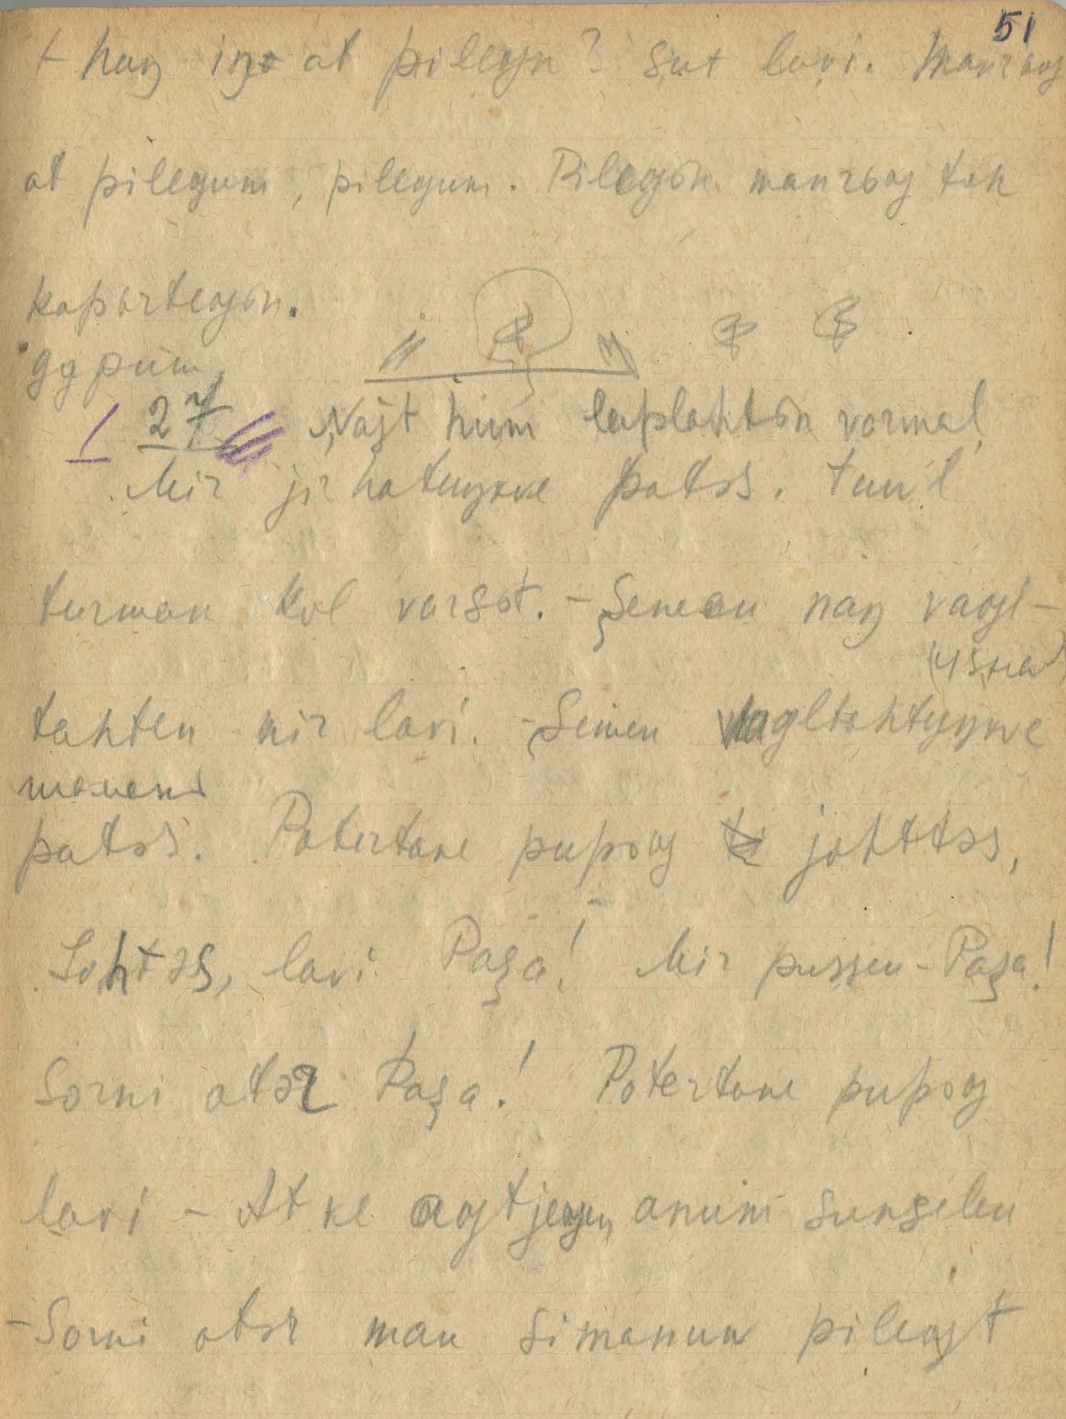 51
– naŋ iŋə at pilegən? Sut lavi. Manrəɣ
at pilegum, pilegum. Pilegən manrəɣ tən
kapərtegən.
27 „Nājt hum laplahtən varmal"
Mir jir hatuŋkve patəs. Tuul
turman kol varsət. – Şemen naŋ vagl-
tahten mir lavi. – Şemen vagltahtuŋkve
patəs. Potertane pupəɣ johttəs,
Sohtəs, lavi Paşa! Mir pussən – Paşa!
Sorni otər Paşa! Potertane pupəɣ
lavi – At ke agtjegen anum sunsilen
– Sorni otər man simanuw pilegt